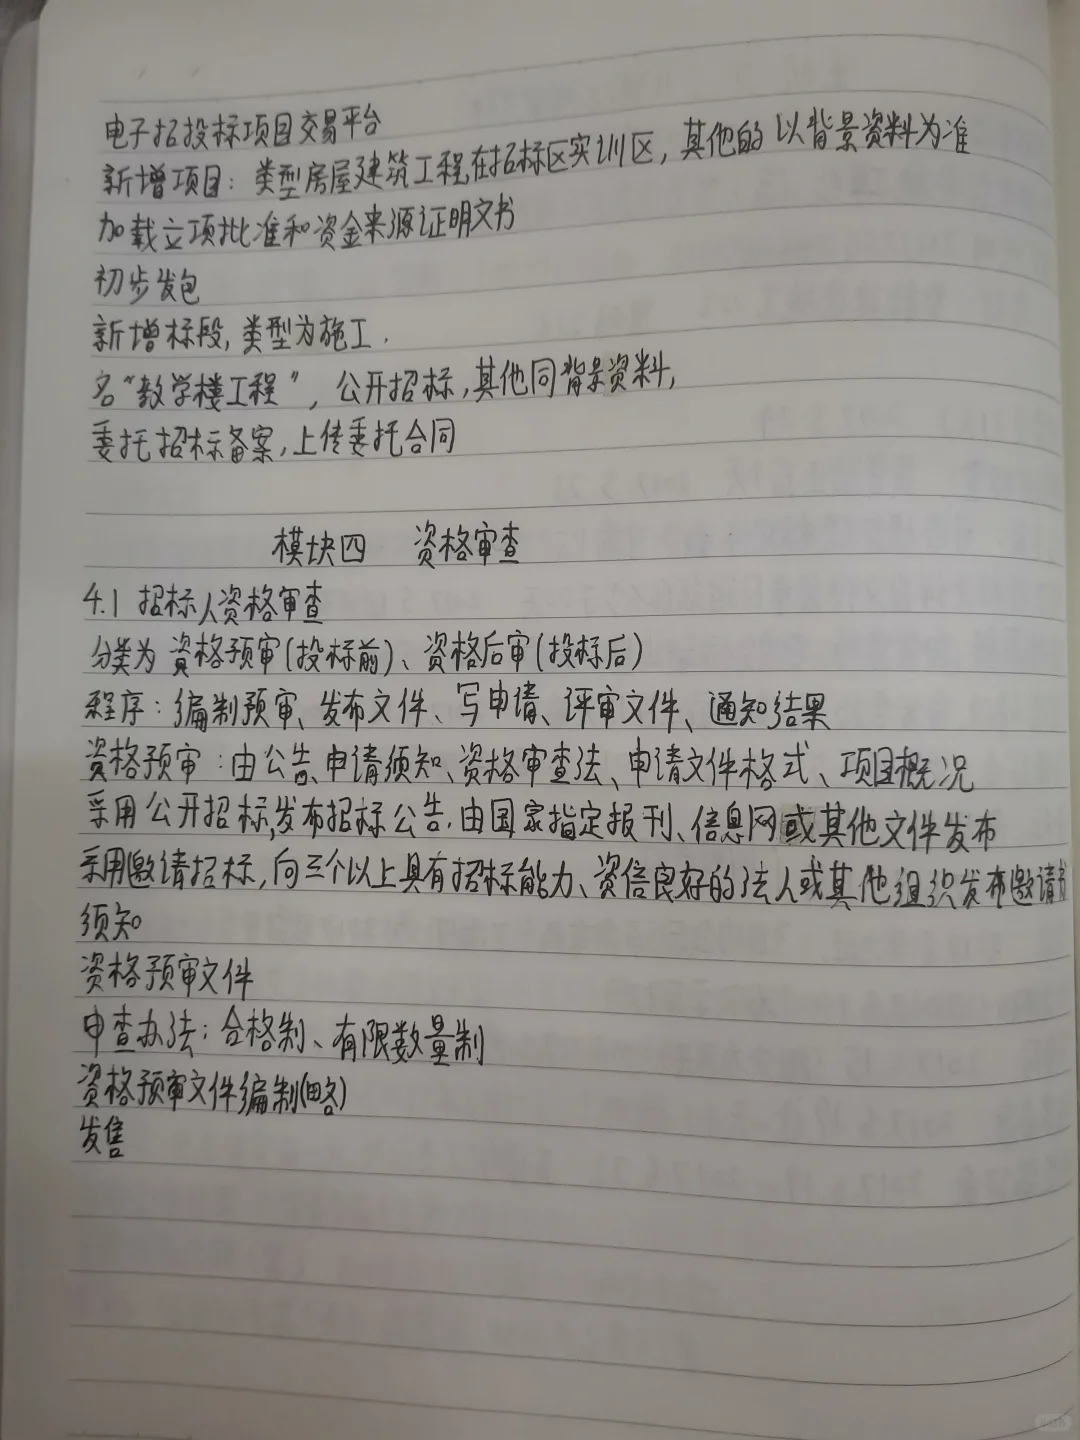 电子招投标项目交易平台
新增项目：类型房屋建筑工程,在招标区实训区，其他的以背景资料为准
加载立项批准和资金来源证明文书
初步发包
新增标段,类型为施工.
名“教学楼工程”，公开招标,其他同背景资料,
委托招标备案,上传委托合同
模块四 资格审查
4.1 招标人资格审查
分类为资格预审(投标前)、资格后审(投标后)
程序：编制预审、发布文件、写申请、评审文件、通知结果
资格预审：由公告、申请须知、资格审查法、申请文件格式、项目概况
采用公开招标,发布招标公告.由国家指定报刊、信息网或其他文件发布
采用邀请招标,向三个以上具有招标能力、资信良好的法人或其他组织发布邀请书
须知
资格预审文件
申查办法：合格制、有限数量制
资格预审文件编制(略)
发售